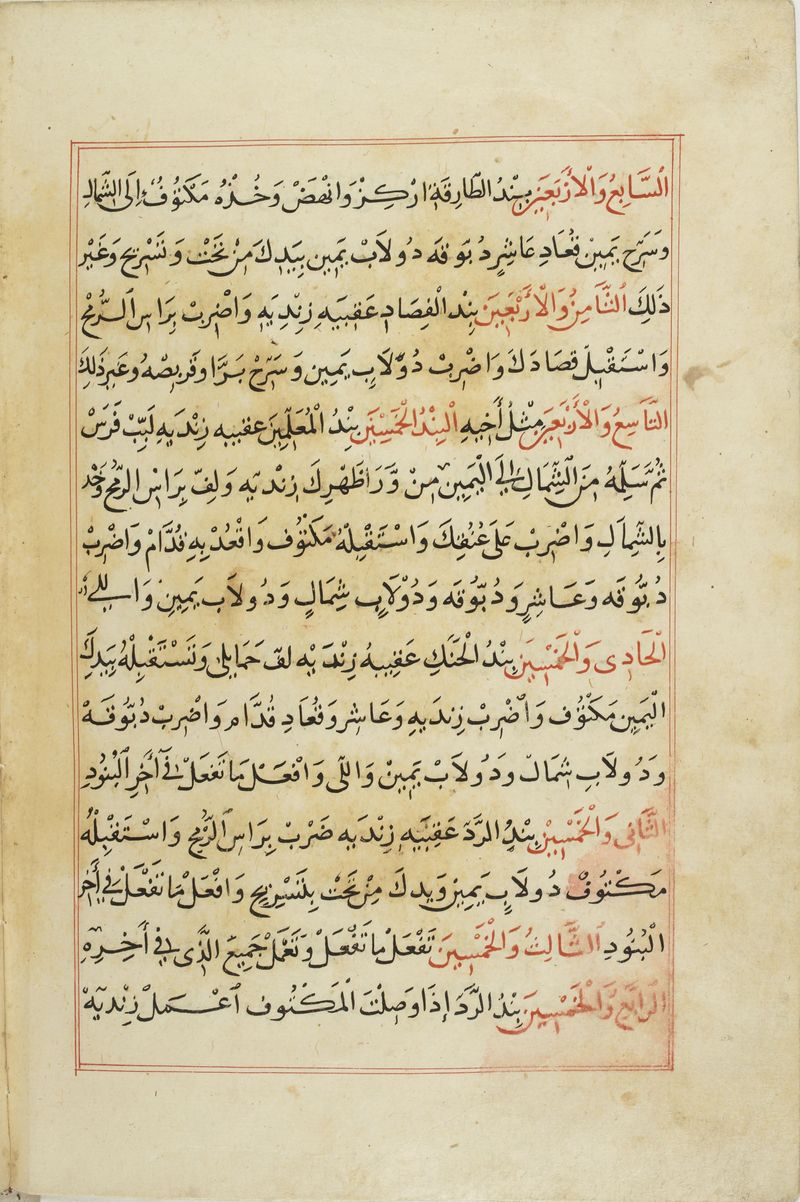 السَّابِعُ وَالْأَرْبَعِينَ بِنْدُ الطَّارِقَةِ ارْكِزْ وَانْهَضْ وَخُذْهُ مَكْتُوفْ إِلَى الشَّمَالِ
وَسَرِّحْ يَمِينْ قُعَادِ عَاشِرِ دُبَوقَه دُولَابْ يَمِين بِيَدِكَ مِنْ تَحْتْ وَتَسْرِيح وَغَيْر
ذَلِكَ الثَّامِنُ وَالْأَرْبَعِينَ بِنْد الْفِصَادِ عَقِبَيهِ زِنْدِيَهِ وَاضْرِبْ بِرَاسِ الرُّمْحْ
وَاسْتَقْبِلْ فِصَادَكَ وَاضْرِبْ دُوْلَابِ يَمِين وَسَرِّحْ بَرَّا وَقَرِيصْهُ وغَير ذَلِكَ
التَّاسِعُ وَالْأَرْبَعِينَ مِثْلُ أَخِيهِ الْبِنْدُ الْخَمْسِينَ بِنْدُ الْمُعَلِّمِينَ عقبيه زِنْدِيَهِ لَبِّبْ فَرَسْ
ثُمَّ سَلِّمْهُ مِنَ الشِّمَالِ إِلَى الْيَمِينْ مِنْ وَّرَا ظَهْرِكَ زِنْديَه وَلِفّ بِرَاسْ الرّمح وَخُذ
بِالشِّمَالِ وَاضْرِبْ عَلَى عُنُقِكَ وَاسْتَقْبِلْهُ مَكْتُوف وَاقْعُدْ بِهِ قُدَّامْ وَاضْرِبْ
دُبُّوقَه وَعَاشِرِ وَدُبّوُقَه وَدُوْلَابِ شِمَالِ وَدُولَابِ يَمِينِ وَاللي
الْحَادِى وَالْخَمْسِينَ بِنْدُ الْحَنَكِ عَقِبِيهُ زِنْدَيْه لفّ حَمَايلى وَتَسْتَقْبِلْهُ بِيَدِكَ
الْيَمِينِ مَكْتُوُف وَاضْرِبْ زِندَيهِ وَعَاشِر وَقُعَادِ قُدَّام وَاضْرِبْ دُبُّوقَهْ
وَدُولَابِ شِمَالْ وَدُولَابْ يَمِينْ وَاللّى وَافْعَلْ مَا تَفْعَلْ فِى آخِرِ الْبُنُودِ
الثَّانِى وَالْخَمْسِينَ بِنْدُ الرَّدَ عَقِبَيهِ زِنْدَيه ضَرْبْ بِرَاسِ الرُّمحِ وَاسْتَقْبِلْهُ
مَكْتُوُفْ دُولَابِ يَمِينْ وَيدكَ مِنْ تَحْتْ بِتَسْرِيحِ وَافْعَلْ مَا تَفْعَلْ فِى آخِرِ
الْبُنُودِ الثَّالِثُ وَالْخَمْسِينَ تَفْعَلْ مَا تَفْعَلْ وَتَعْمَلْ جَمِيعَ الَّذِى فِى أَخِرِهِ
الرَّابِعْ وَالْخَمْسِينَ بِنْدُ الرَّدَ إِذَا وَصِلْتَ الْمَكْتُوفِ اَعْمَلْ زِنْدَيَهْ